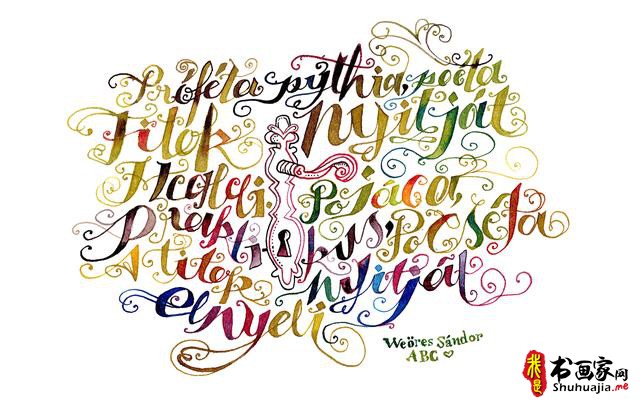 Próféta pythia, poéta
Titok nyitját
Megleli. Pojáca,
Praktikus, Pocséta
A titok nyitját
elnyeli
Weöres Sándor
ABC
我是 书画家网
Shuhuajia.me